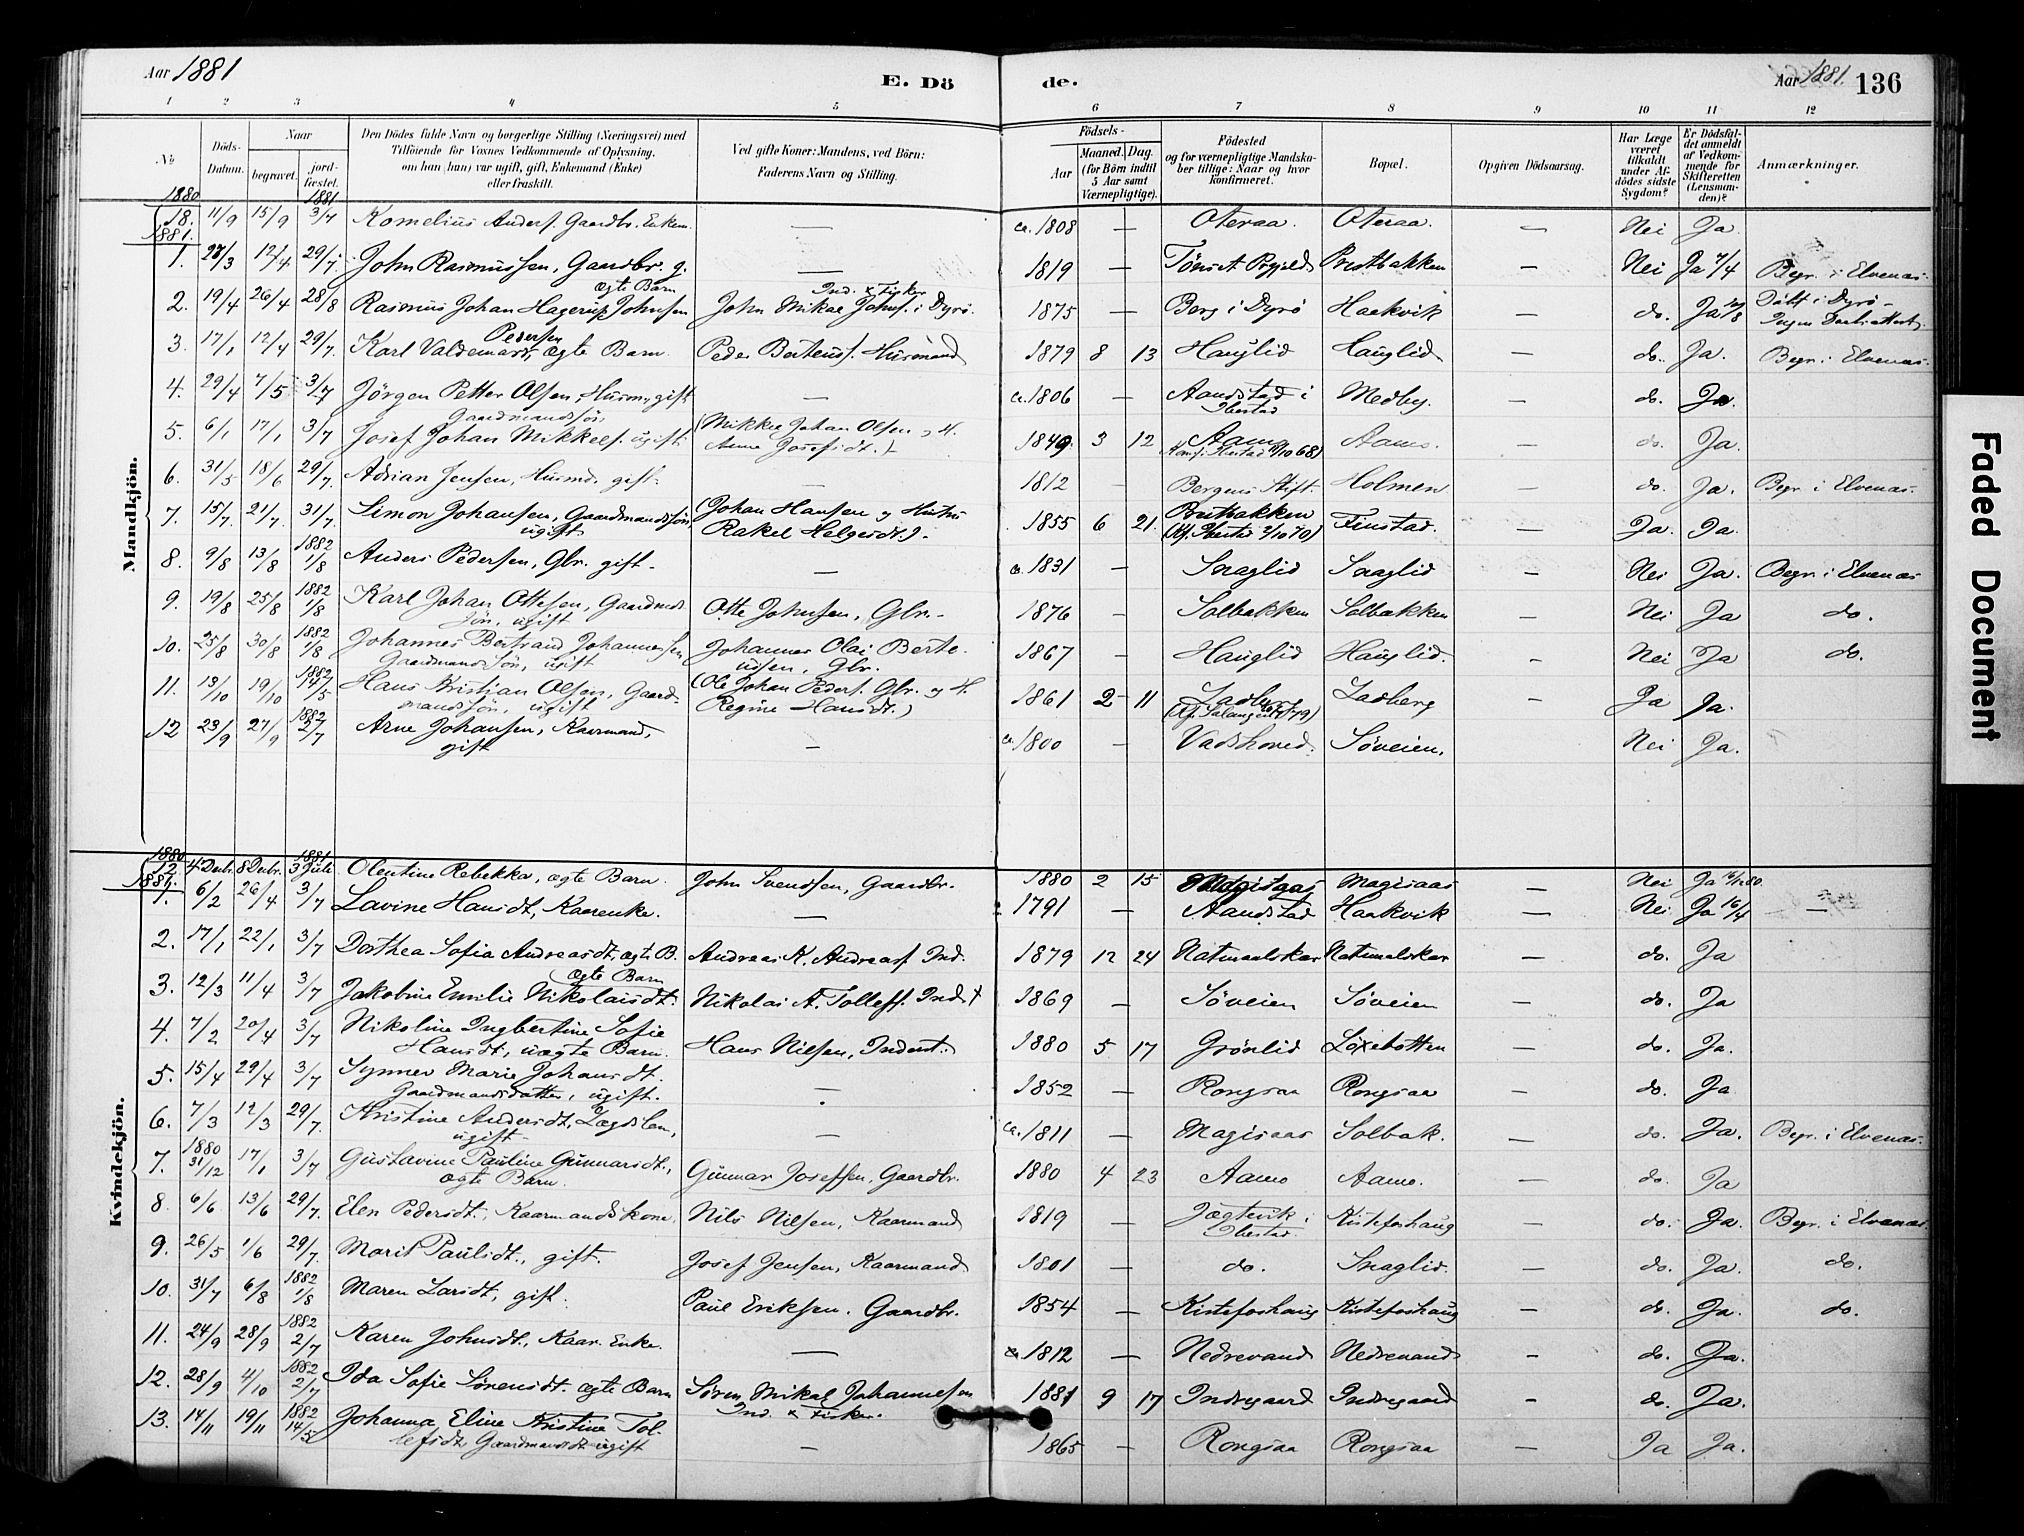 Aar 1881
E. Dö
de.
Aar 1881. 136
1 2 3 4 5 6 7 8 9 10 11 12
№
Döds-
Datum.
Naar
begravet.
jord-
fæstet.
Den Dödes fulde Navn og borgerlige Stilling (Næringsvei) med
Tilföiende for Voxnes Vedkommende af Oplysning,
om han (hun) var ugift, gift, Enkemand (Enke)
eller fraskilt.
Ved gifte Koner: Mandens, ved Börn:
Faderens Navn og Stilling.
Födsels-
Aar
Maaned. Dag.
(for Börn indtil
5 Aar samt
Værnepligtige).
Födested
og for værnepligtige Mandska-
ber tillige: Naar og hvor
konfirmeret.
Bopæl.
Opgiven Dödsaarsag.
Har Læge
været
tilkaldt
under Af-
dödes sidste
Sygdom?
Er Dödsfal-
det anmeldt
af Vedkom-
mende for
Skifteretten
(Lensman-
den)?
Anmærkninger.
Mandkjön.
1880 1881
18. 11/9 15/9 3/7 Kornelius Anders. Gaardbr. Enkem. — ca. 1808 — Oteraa. Oteraa. — Nei Ja
1881.
1. 27/3 12/4 29/7 John Rasmussen, Gaardbr. g. — 1819 — Tönset Prgjeld Prestbakken — Nei Ja 7/4 Begr. i Elvenæs.
ægte Barn Ind. & Fisker
2. 19/4 26/4 28/8 Rasmus Johan Hagerup Johnsen John Mikal Johns. i Dyrö. 1875 — Berg i Dyrö Haakvik — do. Ja Döbt i Dyrö
Pedersen
3. 17/1 12/4 29/7. Karl Valdemar, ægte Barn. Peder Bertens. Husmand 1879 8 13 Hauglid Hauglid — do. Ja. Begr. i Elvenæs.
4. 29/4 7/5 3/7 Jörgen Petter Olsen, Husm. gift — ca. 1806 — Aandstad i Medby. — do. Ja.
Ibestad
Gaardmandssön
5. 6/1 17/1 3/7 Josef Johan Mikkels. ugift. (Mikkel Johan Olsen og H. 1849. 3 12 Aamo Aamo. — do. Ja.
Anne Josefsdt.)
6. 31/5 18/6 29/7. Adrian Jensen, Husmd. gift. — 1812 — Bergens Stift. Holmen — do. Ja. Begr. i Elvenæs.
7. 15/7. 21/7. 31/7. Simon Johansen, Gaardmandssön (Johan Hansen og Hustru 1855 6 21 Prestbakken Finstad. — Ja. Ja.
ugift Rakel Helgesdt.)
8. 9/8 13/8 1882 1/8 Anders Pedersen, Gbr. gift. — ca. 1831 — Snaglid Snaglid — Nei Ja. Begr. i Elvenæs
9. 19/8 25/8 1882 1/8 Karl Johan Ottesen, Gaardmds. Otte Johnsen, Gbr. 1876 — Solbakken Solbakken — Nei Ja do.
sön, ugift
10. 25/8 30/8 1882 1/8 Johannes Bertrand Johannessen, Johannes Olai Berte- 1867 — Hauglid Hauglid. — Nei Ja do.
Gaardmandssön, ugift ussen, Gbr.
11. 13/10 19/10 1882 14/5 Hans Kristian Olsen, Gaard- (Ole Johan Peders. Gbr. og H. 1861 2 11 Ladberg Ladberg — Ja Ja.
mandssön, ugift Regine Hansdt.)
12 23/9 27/9 1882 2/7 Arne Johansen, Kaarmand, — ca. 1800 — Vadshoved. Söveien. Nei Ja.
gift
Kvindekjön.
1880 1881
12. 4 Decbr. 8 Decbr. 3 Juli Olentine Rebekka, ægte Barn. John Svendsen, Gaardbr. 1880 2 15 Magisaas Magisaas — Nei Ja
1881.
1. 6/2 26/4 3/7 Lavine Hansdt, Kaarenke. — 1791 — Aandstad Haakvik — Nei Ja 16/4 —
2. 17/1 22/1 3/7 Dorthea Sofia Andreasdt, ægte B. Andreas K. Andreass. Ind. 1879 12 24 Natmaalskar Natmalskar — do. Ja
ægte Barn
3. 12/3 11/4 3/7 Jakobine Emilie Nikolaisdt. Nikolai A. Tollefs. Inds † 1869 — Söveien Söveien — do. Ja
4. 7/2 20/4 3/7 Nikoline Ingbertine Sofie
Hansdt, uægte Barn. Hans Nilsen, Inderst. 1880 5 17 Grönlid Löxebotten — do. Ja.
5. 15/4 29/4 3/7 Synnev Marie Johansdt. — 1852 — Rongsaa Rongsaa — do. Ja
Gaardmandsdatter, ugift.
6. 7/3 12/3 29/7. Kristine Andersdt. Lægdslem, — ca. 1811 — Magisaas Solbak. — do. Ja. Begr. i Elvenæs.
ugift
7. 1880 31/12 17/1 3/7 Gustavine Pauline Gunnarsdt., Gunnar Josefsen, Gaardbr. 1880 4 23 Aamo Aamo. — do. Ja
ægte Barn.
8. 6/6 13/6 29/7. Elen Pedersdt., Kaarmandskone. Nils Nilsen, Kaarmand 1819 — Jægtvik i Kisteforshaug — do. Ja. Begr. i Elvenæs
Ibestad.
9. 26/5 1/6 29/7. Marit Paulsdt., gift. Josef Jensen, Kaarmand. 1801 — do. Snaglid. — do. Ja. do.
10. 31/7 6/8 1882 1/8 Maren Larsdt, gift. Paul Eriksen. Gaardbr. 1854 — Kisteforshaug Kisteforshaug — do. Ja. do.
11. 24/9 28/9 1882 2/7 Karen Johnsdt., Kaar. Enke. — ca. 1812 — Nedrevand Nedrevand — do. Ja.
12. 28/9 4/10 1882 2/7 Ida Sofie Sörensdt. ægte Barn Sören Mikal Johannesen 1881 9 17 Indregaard Indregaard — do. Ja.
Ind. & Fisker.
13. 14/11 19/11 1882 14/5 Johanna Eline Kristine Tol-
lefsdt, Gaardmandsdt ugift — 1865 — Rongsaa Rongsaa — Ja Ja.
Faded Document